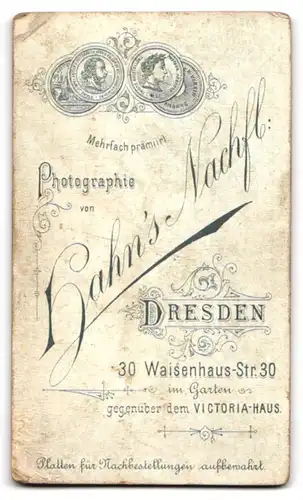 Mehrfach prämiirt
Photographie
von
Hahn's Nachfl:
DRESDEN
30 Waisenhaus-Str. 30
im Garten
gegenüber dem VICTORIA-HAUS.
Platten für Nachbestellungen aufbewahrt.